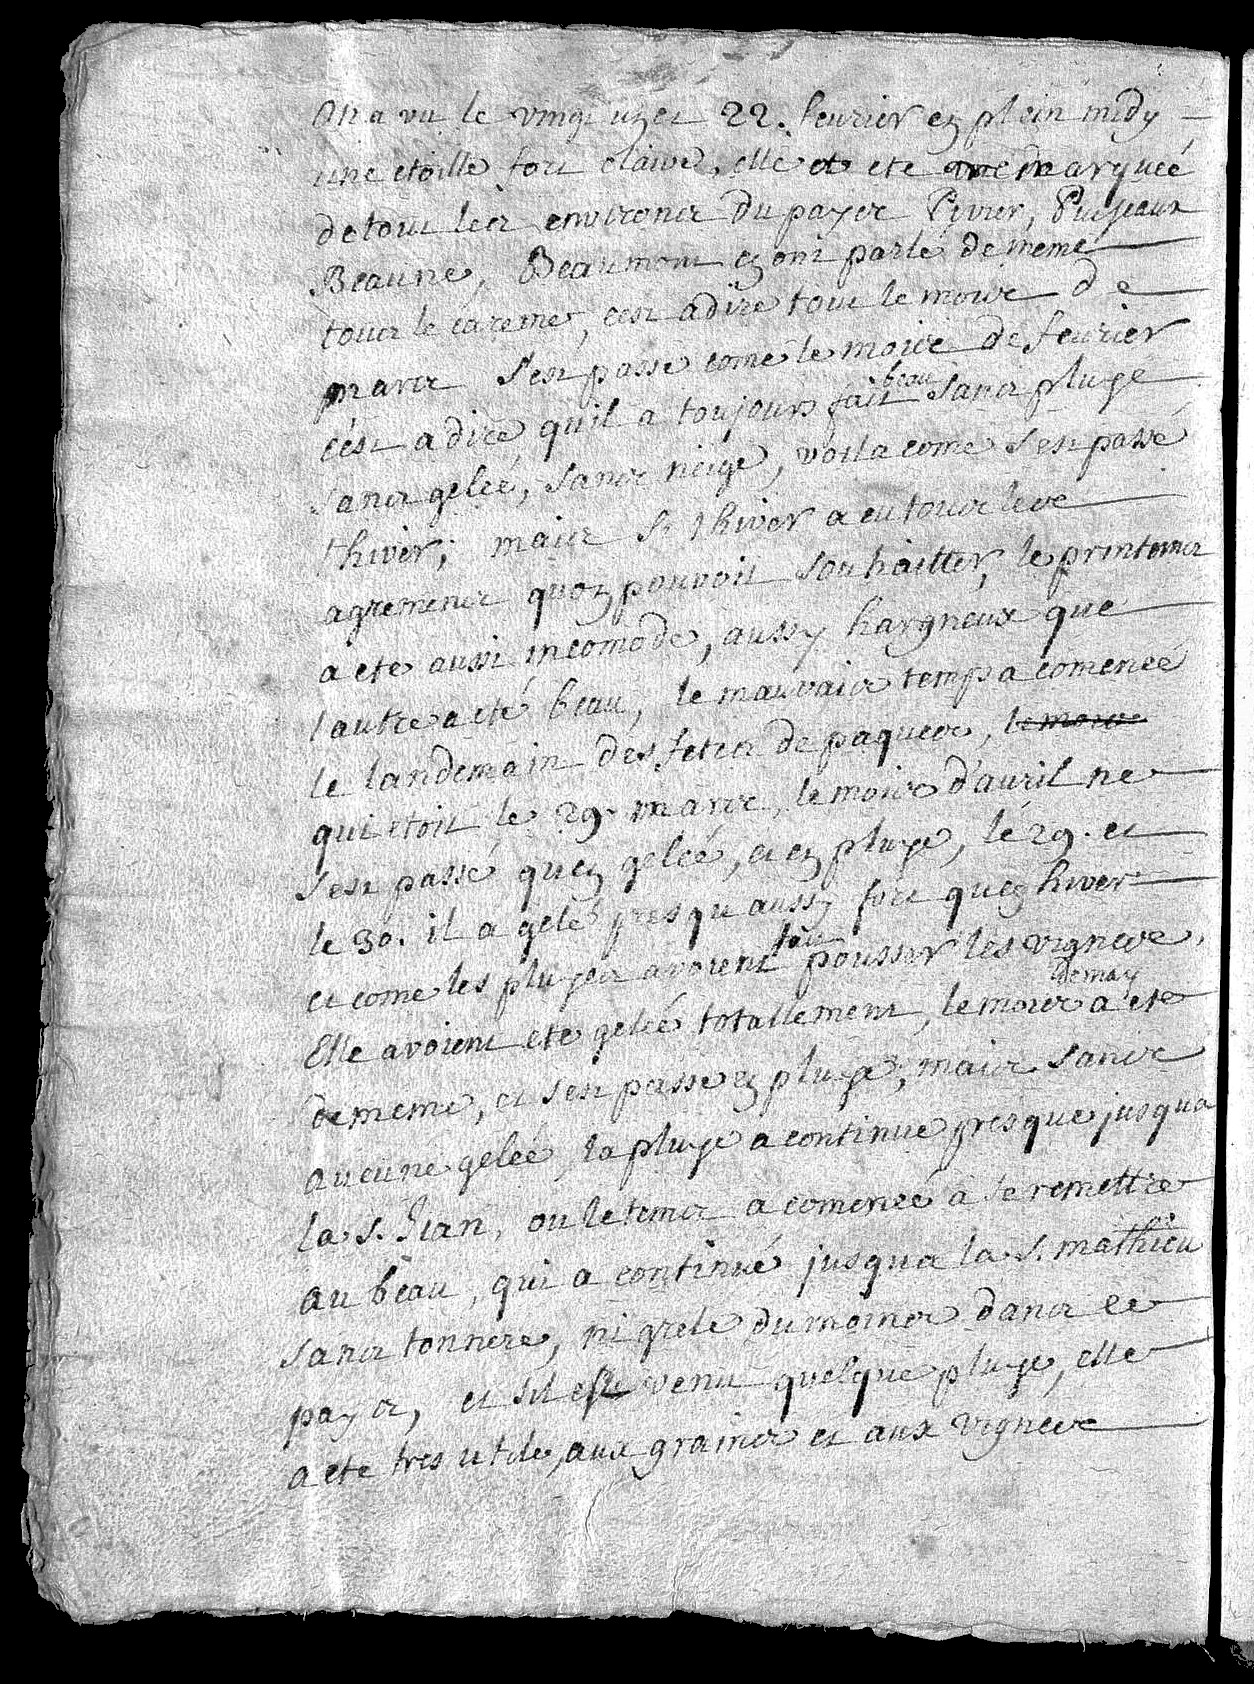 On a vu le vingt un et 22. feurier en plein midy
une etoille fort claire, elle a ete remarqueé
de tout les environs du payse Pivier, Puiseaux
Beaune, Beaumont en ont parlé de meme
tous le careme, cest adire tout le moise de
marse s'est passe come le moise de feurier
cést a dire quil a toujours fait beau sans pluye
sans gelée, sans neige, voila come s'est passé
lhiver; mais si lhiver a eu tous lese
agremense quon pouvoit souhaitter, le printems
a ete aussi incomode, aussy hargneux que
lautre a eté beau, le mauvais temps a comencé
le landemain des fetes de paquese, le moise
qui etoit le 29. marse, le moise d'auril ne
s'est passé quen gelée, et en pluye, le 29. et
le 30. il a gelé presqu aussy fort quen hiver
et come les pluyes avoient fait pousser les vignese,
Elle avoient ete geleé totallement, le mois de may a ete
de meme, et s'est passe en pluye, mais sanse
aucune gelée, la pluye a continue presque jusqua
la s. Jean, ou le tems a comencé a se remettre
au beau, qui a continué jusqua la s. mathieu
sans tonnere, ni grele du moinse dans ce
pays, et sil est venu quelque pluye, elle
a ete tres utile, aux grains et aux vignese